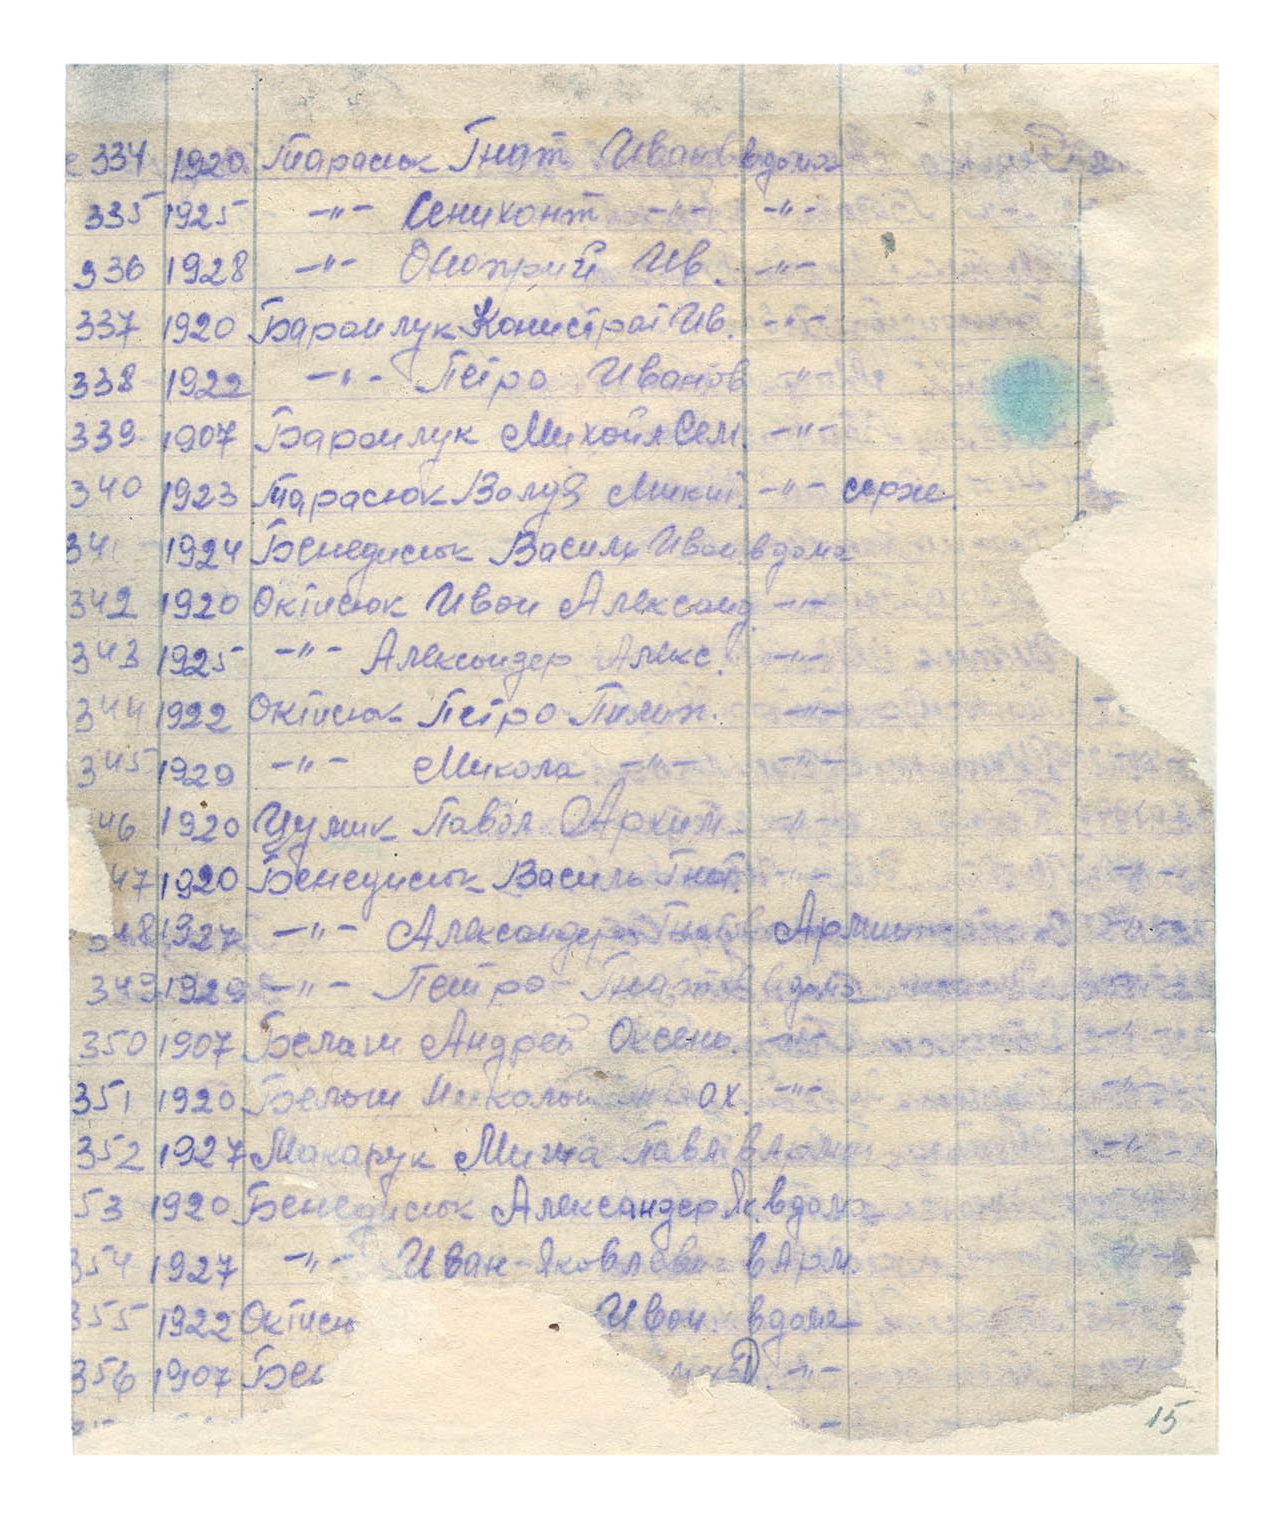 334 1920 Тарасюк Гнат Иванов вдома
335 1925 -"- Сенихонт -"- -"-
336 1928 -"- Оноприй Ив. -"-
337 1920 Бароилук Конистрат Ив. -"-
338 1922 -"- Петро Иванов -"-
339 1907 Бароилук Михойл Сем. -"-
340 1923 Тарасюк Волуд Микит. -"- серже
341 1924 Бенедисюк Василь Иван вдома
342 1920 Октисюк Иван Александ. -"-
343 1925 -"- Александер Алекс. -"-
344 1922 Октисюк Петро Пилип. -"-
345 1929 -"- Микола -"- -"-
46 1920 Цумик Павол Архип. -"-
47 1920 Бенедисюк Василь Гнат. -"-
348 1927 -"- Александер Гнатов Армии
349 1929 -"- Петро Гнатов вдома
350 1907 Белаш Андрей Оксень. -"-
351 1920 Белаш ох. -"-
352 1927 Макарук Миша Павл вАрми
53 1920 Бенедисюк Александер Як. вдома
354 1927 -"- Иван Яковлев вАрм.
355 1922 Октисю Иван вдома
356 1907 Бе -"-
15